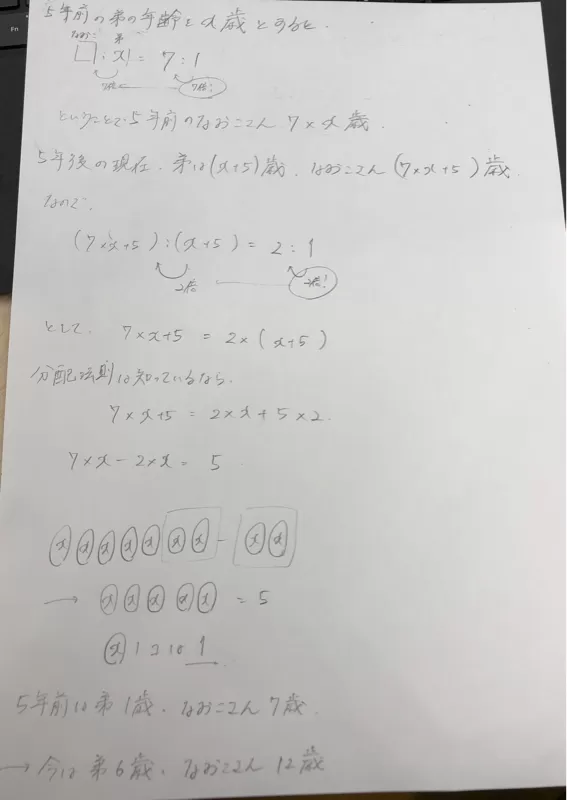 5年前の弟の年齢をx歳とすると、
なおこ 弟
□:x = 7:1
7倍 7倍!
ということで5年前のなおこさん 7×x歳.
5年後の現在、弟は(x+5)歳、なおこさん(7×x+5)歳.
なので、
(7×x+5):(x+5) = 2:1
2倍 2倍!
として、 7×x+5 = 2×(x+5)
分配法則は知っているなら、
7×x+5 = 2×x+5×2.
7×x-2×x = 5
ⓧⓧⓧⓧⓧⓧⓧ-ⓧⓧ
→ ⓧⓧⓧⓧⓧ = 5
ⓧ1コは1
5年前は弟1歳、なおこさん7歳.
→今は弟6歳、なおこさん12歳